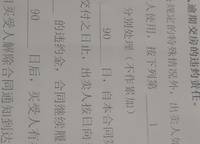 逾期交房的违约责任。
规定的特殊情况外，出卖人
人使用，按下列第 1
分别处理（不作累加）
90 日，自本合同
交付之日止，出卖人按日向
的违约金，合同继续履
90 日后，买受人有
买受人解除合同通知到达